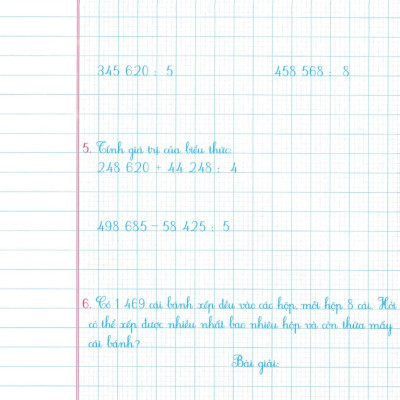 345 620 : 5 458 568 : 8
5. Tính giá trị của biểu thức:
248 620 + 44 248 : 4
498 685 - 58 425 : 5
6. Có 1 469 cái bánh xếp đều vào các hộp, mỗi hộp 8 cái. Hỏi
có thể xếp được nhiều nhất bao nhiêu hộp và còn thừa mấy
cái bánh?
Bài giải: